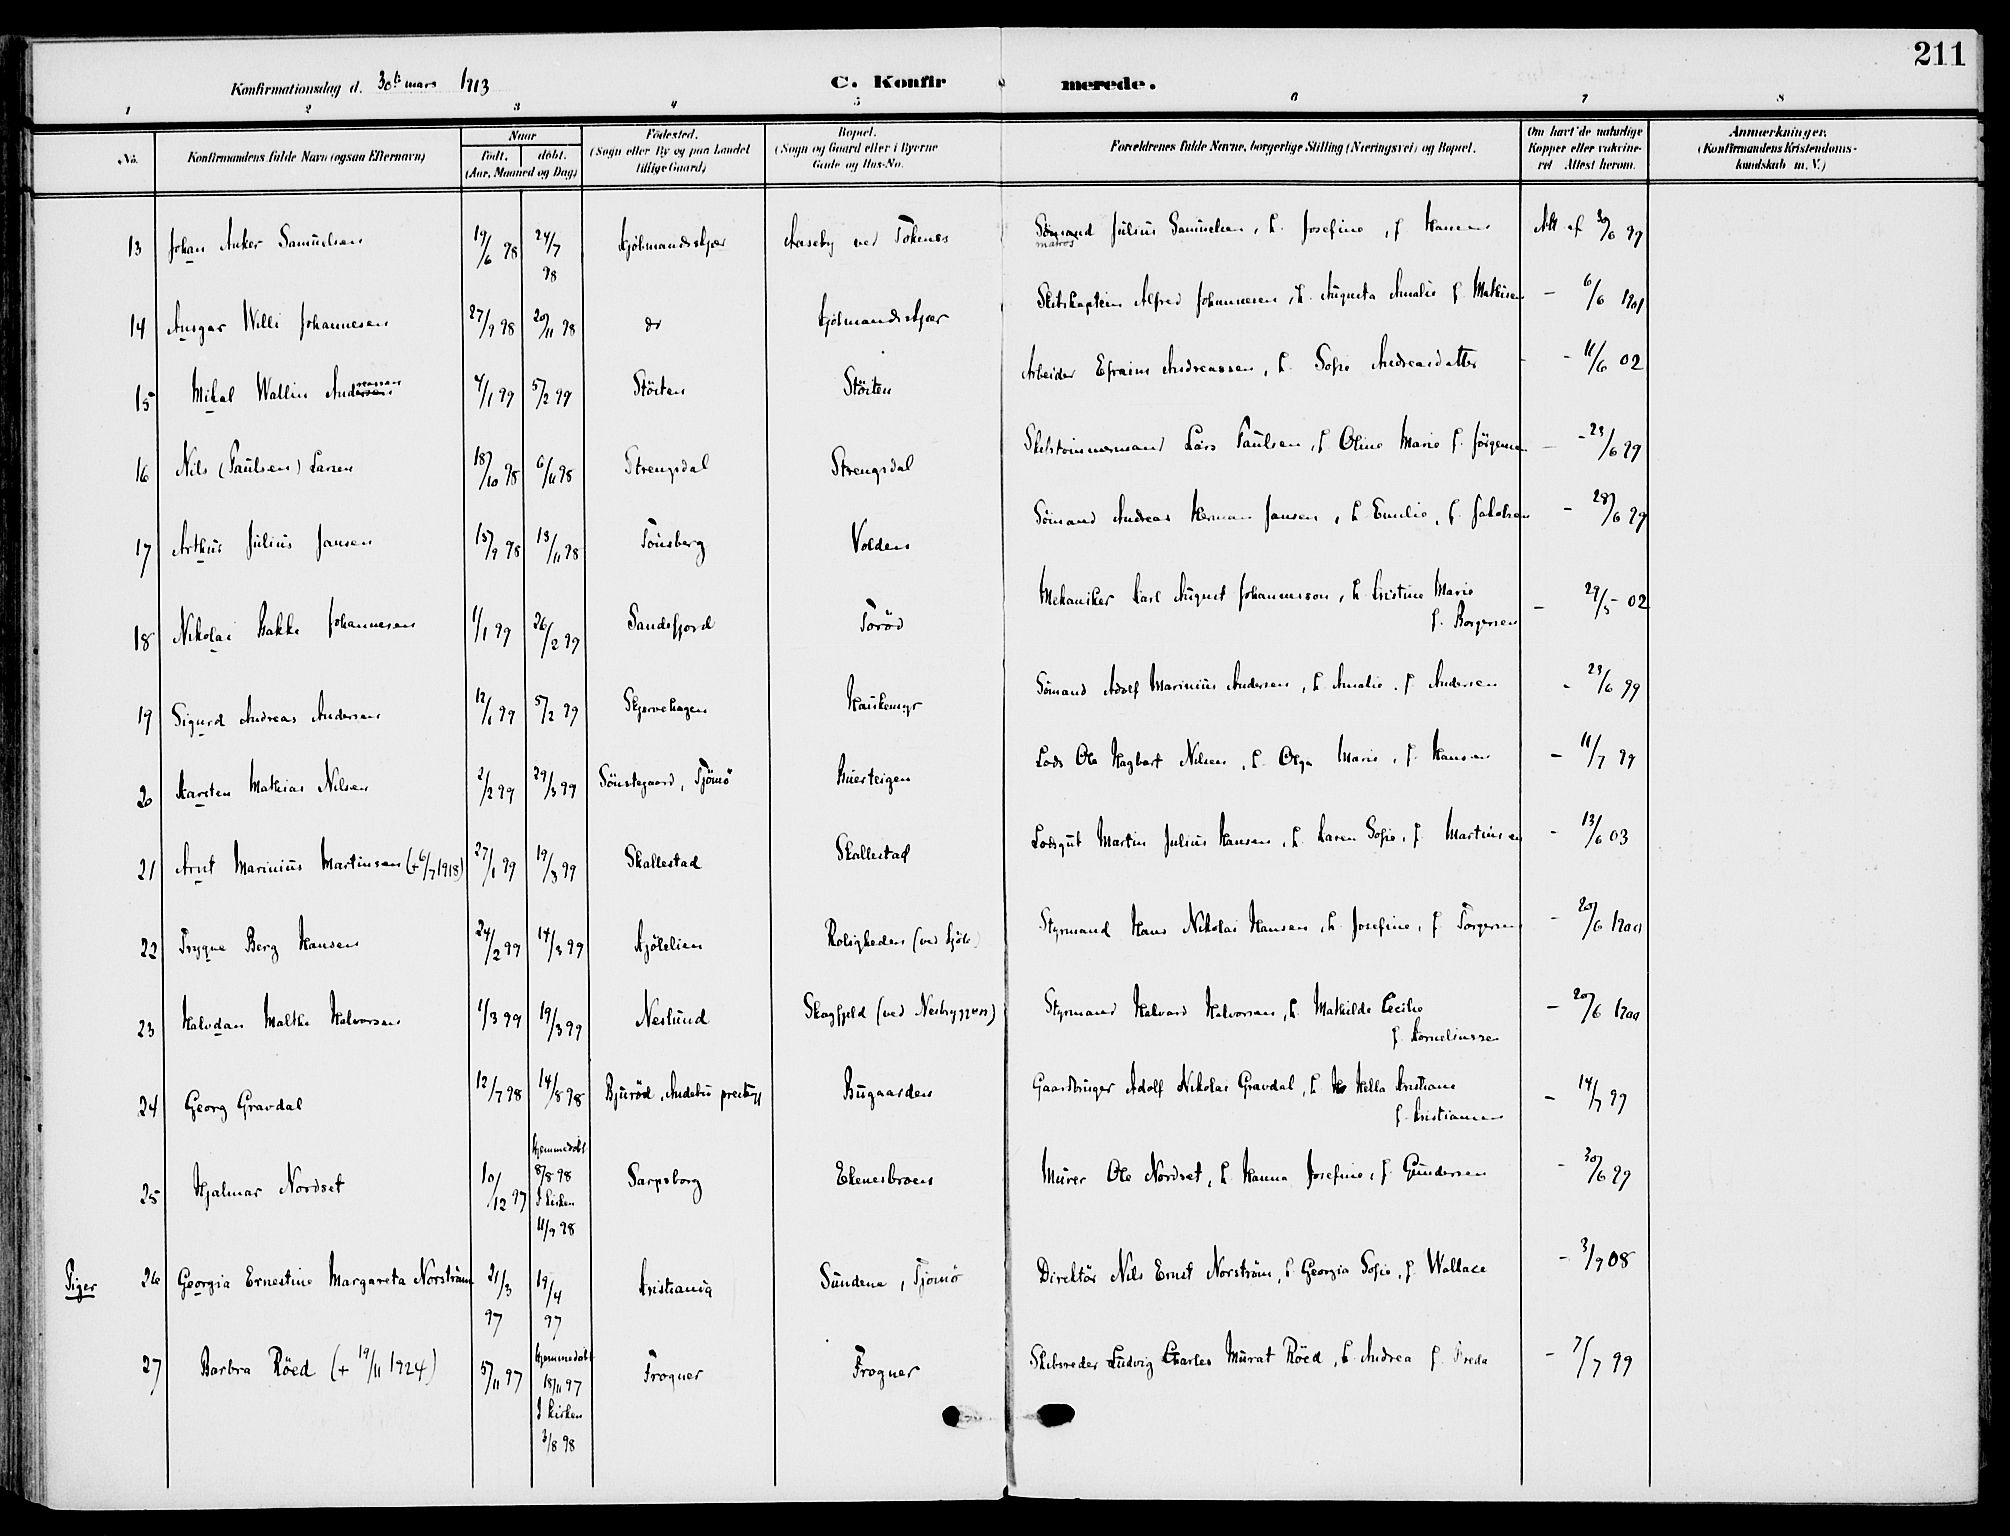 211
Konfirmationsdag d. 30te mars 1913 C. Konfirmerede.
1 2 3 4 5 6 7 8
No. Konfirmandens fulde Navn (ogsaa Efternavn) Naar født, døbt. (Aar, Maaned og Dag) Fødested. (Sogn eller By og paa Landet tillige Gaard) Bopæl. (Sogn og Gaard eller i Byerne Gade og Hus-No. Forældrenes fulde Navne, borgerlige Stilling (Næringsvei) og Bopæl. Om havt de naturlige Kopper eller vakcineret Attest herom. Anmærkninger. (Konfirmandens Kristendomskundskab m. V.)
13 Johan Anker Samuelsen 19/6 98 24/7 98 Kjølmandsskjær Aaseby ved Tokenes Sømand Julius Samuelsen, h. Josefine, f. Hansen Att af 30/6 99
matros
14 Ansgar Willi Johannesen 27/9 98 20/11 98 do Kjølmandsskjær Skibskaptein Alfred Johannesen, h. Augusta Amalie f. Mathisen - 6/6 1901
15 Mikal Wallin Andersen reassen 4/1 99 5/2 99 Støiten Støiten Arbeider Efraim Andreassen, h. Sofie Andreasdatter - 11/6 02
16 Nils (Paulsen) Larsen 18/10 98 6/11 98 Strengsdal Strengsdal Skibstømmermand Lars Paulsen, h Oline Marie f. Jörgensen - 23/6 99
17 Arthur Julius Jansen 15/9 98 13/11 98 Tønsberg Volden Sømand Andreas Herman Jansen, h Emilie, f. Jakobsen - 28/6 99
18 Nikolai Bakke Johannesen 1/1 99 26/2 99 Sandefjord Torød Mekaniker Karl August Johannesson, h. Kristine Marie f. Borgersen - 29/5 - 02
19 Sigurd Andreas Andersen 12/1 99 5/2 99 Skjervehagen Haukemyr Sømand Adolf Marinius Andersen, h. Amalie. f Andersen - 23/6 99
20 Karsten Mathias Nilsen 2/2 99 29/3 99 Sønstegaard, Tjømö Buerteigen Lods Ole Hagbart Nilsen, h. Olga Marie, f. Hansen - 11/7 99
21 Arnt Marinius Martinsen (+ 6/7 1918) 27/1 99 19/3 99 Skallestad Skallestad Lodsgut Martin Julius Hansen, h. Karen Sofie, f. Martinsen - 13/6 03
22 Trygve Berg Hansen 24/2 99 14/3 99 Kjølelien Roligheden (ved Kjøle) Styrmand Hans Nikolai Hansen, h. Josefine, f Torgersen - 20/6 1900
23 Halvdan Malthe Halvorsen 1/3 99 19/3 99 Neslund Skogfjeld (ved Nesbryggen) Styrmand Halvard Halvorsen, h. Mathilde Cecilie f. Korneliussen - 20/6 1900
24 Georg Gravdal 12/7 98 14/8 98 Bjurød, Andebu prestegj Bugaarden Gaardbruger Adolf Nikolai Gravdal, h Hella Kristiane f. Kristiansen - 14/7 99
25 Hjalmar Nordset 10/12 97 Hjemmedøbt 8/8 98 I kirken 11/9 98 Sarpsborg Ekenesbroen Murer Ole Nordset, h. Hanna Josefine, f Gundersen - 30/6 99
Piger 26 Georgia Ernestine Margareta Norström 21/3 97 19/4 97 Kristiania Sundene, Tjømø Direktör Nils Ernst Norström, h Georgia Sofie, f. Wallace - 3/9 08
27 Barbra Röed (+ 19/11 1924) 5/11 97 Hjemmedøbt 18/11 97 I kirken 3/8 98 Trogner Trogner Skibsreder Ludvig Charles Murat Röed, h. Andrea f. Breda - 7/7 99